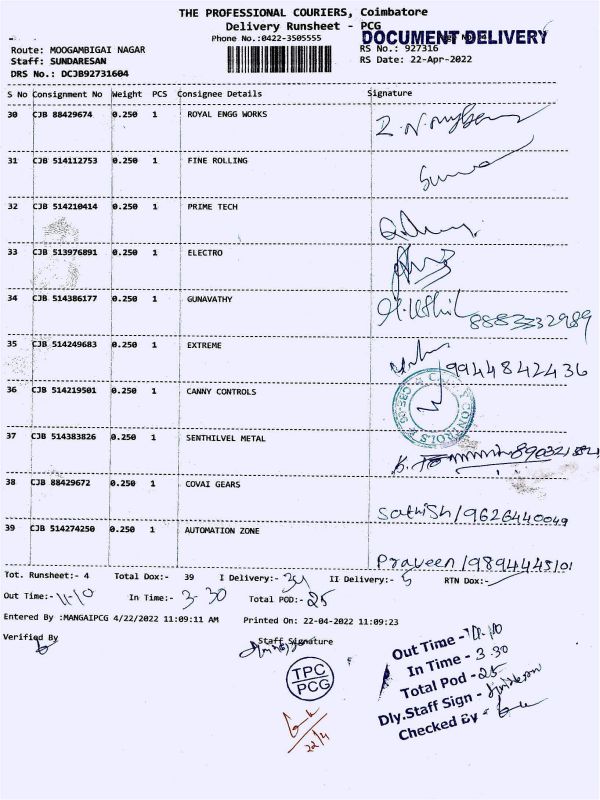 THE PROFESSIONAL COURIERS, Coimbatore
Delivery Runsheet - PCG
Phone No.:0422-3505555
DOCUMENT DELIVERY
Route: MOOGAMBIGAI NAGAR
RS No.: 927316
Staff: SUNDARESAN
RS Date: 22-Apr-2022
DRS No.: DCJB92731604
S No Consignment No Weight PCS Consignee Details Signature
30 CJB 88429674 0.250 1 ROYAL ENGG WORKS
31 CJB 514112753 0.250 1 FINE ROLLING
32 CJB 514210414 0.250 1 PRIME TECH
33 CJB 513976891 0.250 1 ELECTRO
34 CJB 514386177 0.250 1 GUNAVATHY 8883332989
35 CJB 514249683 0.250 1 EXTREME 9944842436
36 CJB 514219501 0.250 1 CANNY CONTROLS
37 CJB 514383826 0.250 1 SENTHILVEL METAL
38 CJB 88429672 0.250 1 COVAI GEARS Sathish/9626440049
39 CJB 514274250 0.250 1 AUTOMATION ZONE Praveen/9894445101
Tot. Runsheet:- 4 Total Dox:- 39 I Delivery:- 34 II Delivery:- 5 RTN Dox:-
Out Time:- 11-10 In Time:- 3-30 Total POD:- 25
Entered By :MANGAIPCG 4/22/2022 11:09:11 AM Printed On: 22-04-2022 11:09:23
Verified By Staff Signature
TPC
PCG
22/4
Out Time - 11.10
In Time - 3.30
Total Pod - 25
Dly.Staff Sign -
Checked By -